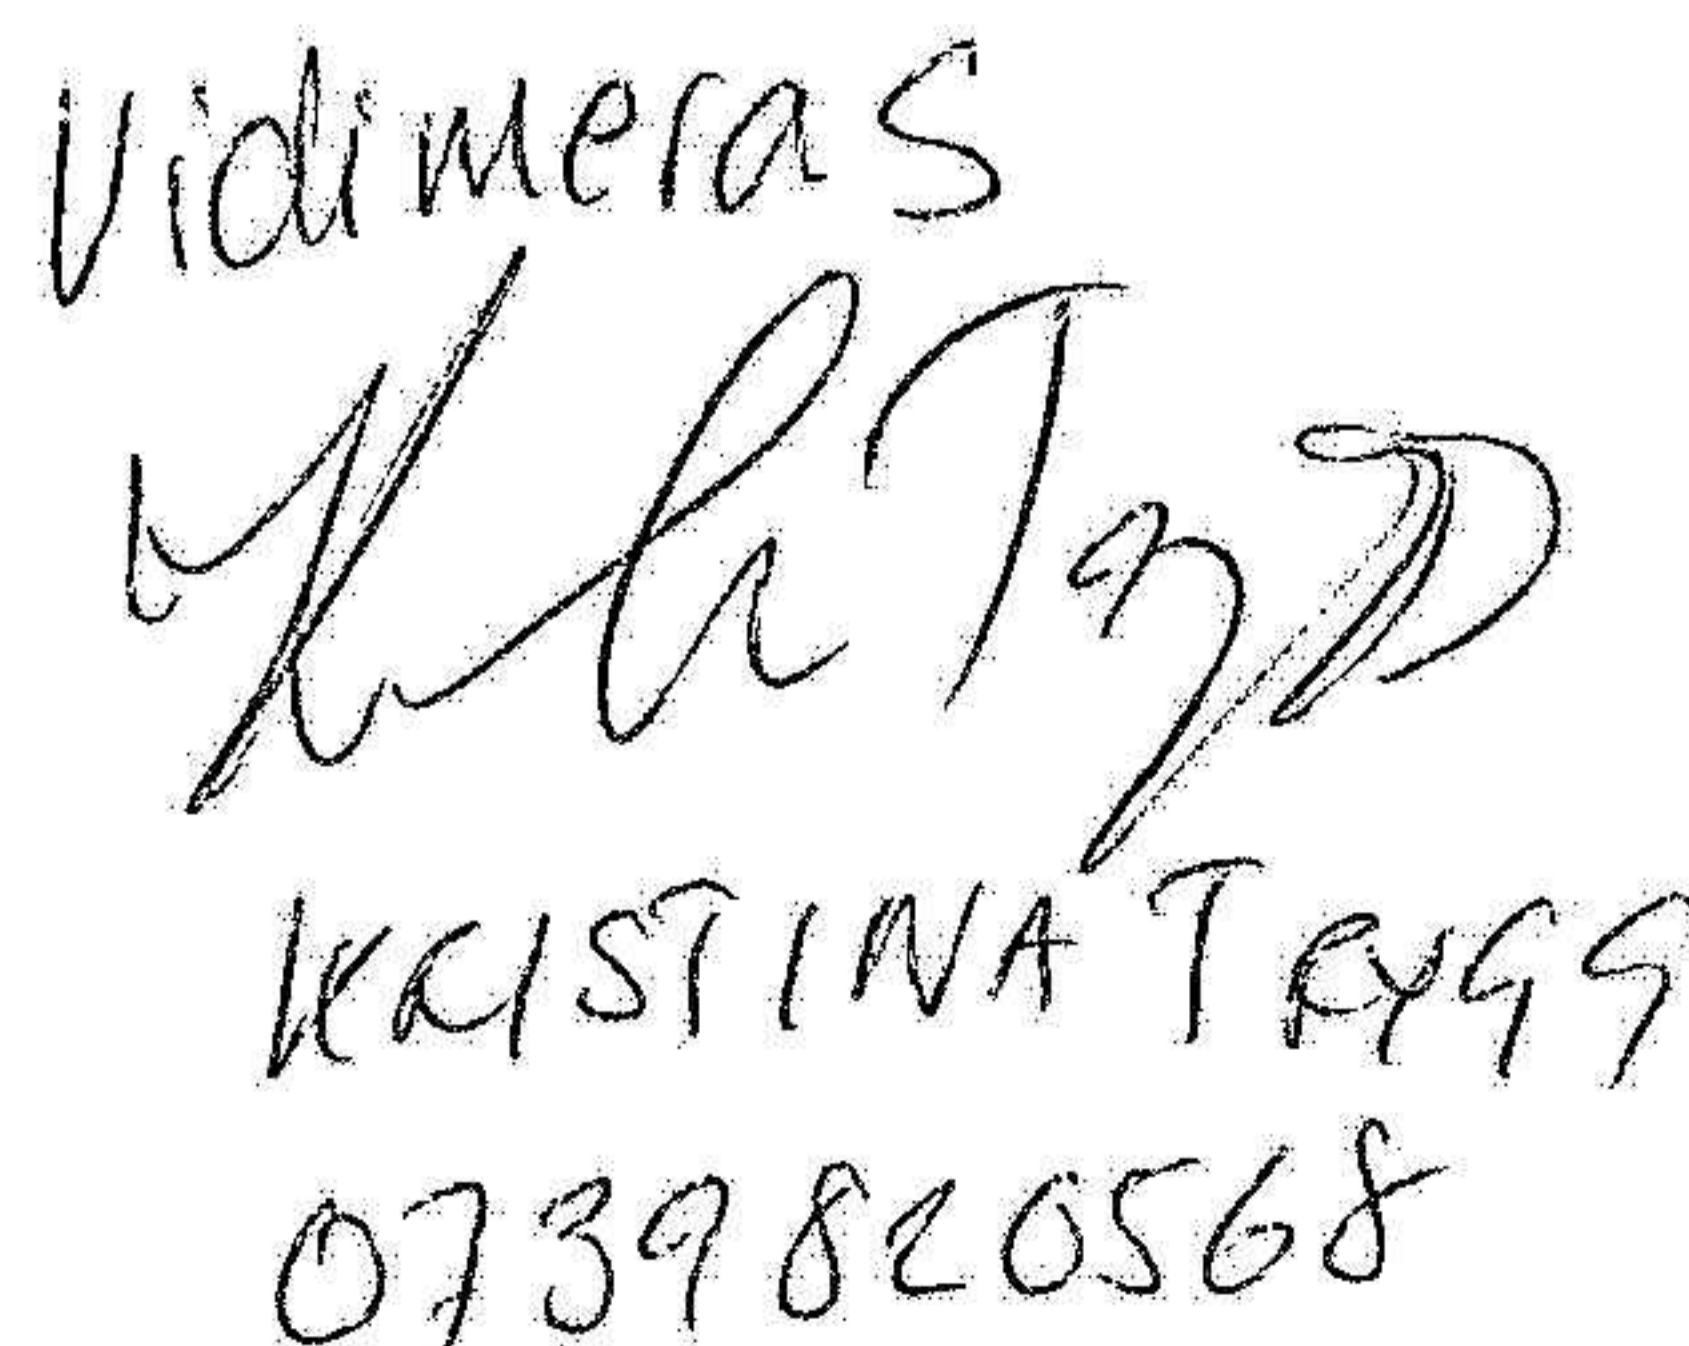 Vidimeras
KRISTINA TRYGG
0739820568